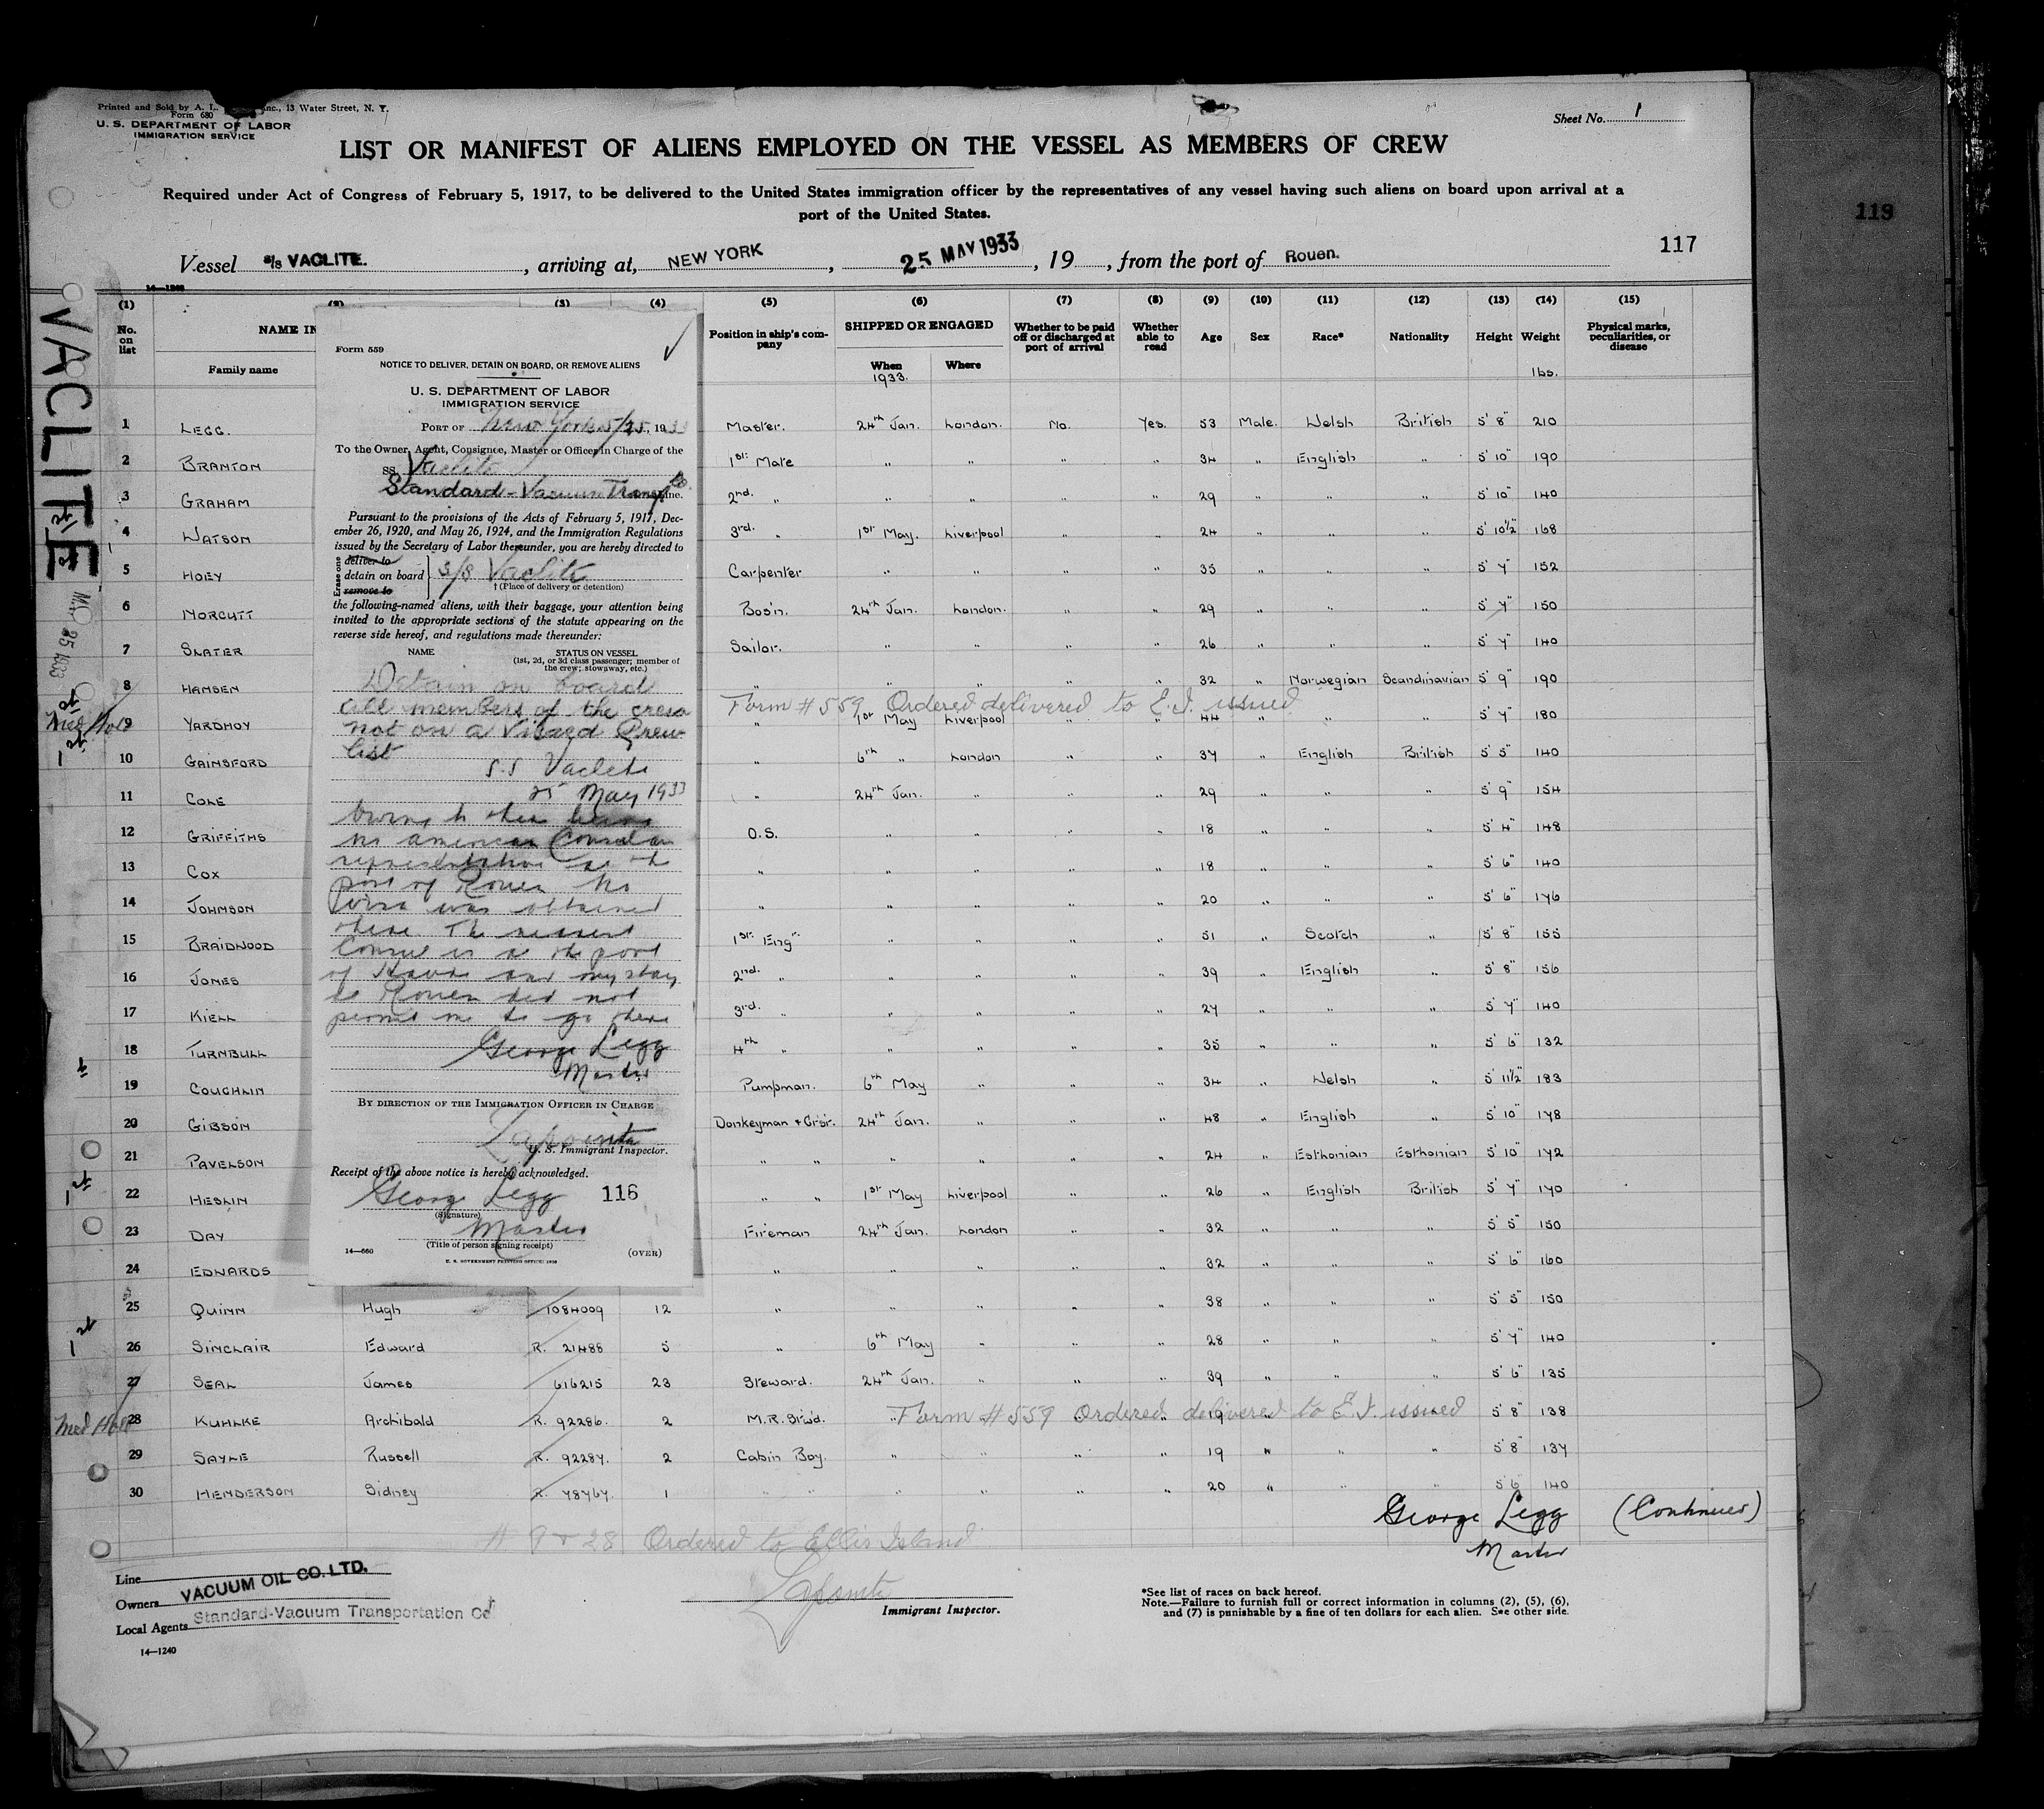 Printed and Sold by A. L. Inc., 13 Water Street, N. Y.
Form 680
U. S. DEPARTMENT OF LABOR
IMMIGRATION SERVICE
Sheet No. 1
LIST OR MANIFEST OF ALIENS EMPLOYED ON THE VESSEL AS MEMBERS OF CREW
Required under Act of Congress of February 5, 1917, to be delivered to the United States immigration officer by the representatives of any vessel having such aliens on board upon arrival at a
port of the United States.
119
117
Vessel s/s VACLITE. , arriving at, NEW YORK , 25 MAY 1933 , 19 , from the port of Rouen.
VACLITE
(1) (2) (3) (4) (5) (6) (7) (8) (9) (10) (11) (12) (13) (14) (15)
No. on list NAME IN Family name Position in ship's company SHIPPED OR ENGAGED When 1933. Where Whether to be paid off or discharged at port of arrival Whether able to read Age Sex Race* Nationality Height Weight lbs. Physical marks, peculiarities, or disease
1 LEGG. Master. 24th Jan. London. No. Yes. 53 Male. Welsh British 5' 8" 210
2 BRANTON 1st Mate " " " " 34 " English " 5' 10" 190
3 GRAHAM 2nd. " " " " " 29 " " " 5' 10" 140
4 WATSON 3rd. " 1st May. Liverpool " " 24 " " " 5' 10½" 168
5 HOEY Carpenter " " " " 35 " " " 5' 7" 152
6 NORCUTT Bos'n. 24th Jan. London. " " 29 " " " 5' 7" 150
7 SLATER Sailor. " " " " 26 " " " 5' 7" 140
8 HANSEN " " " " " 32 " Norwegian Scandinavian 5' 9" 190
Form # 559 Ordered delivered to E.I. issued
Med Hold 9 YARDNOY " 1st May Liverpool " " 44 " " " 5' 7" 180
10 GAINSFORD " 6th " London " " 37 " English British 5' 5" 140
11 COLE " 24th Jan. " " " 29 " " " 5' 9" 154
12 GRIFFITHS O.S. " " " " 18 " " " 5' 4" 148
13 COX " " " " " 18 " " " 5' 6" 140
14 JOHNSON " " " " " 20 " " " 5' 6" 176
15 BRAIDWOOD 1st. Eng'r. " " " " 51 " Scotch " 5' 8" 155
16 JONES 2nd. " " " " " 39 " English " 5' 8" 156
17 KIELL 3rd. " " " " " 27 " " " 5' 7" 140
18 TURNBULL 4th " " " " " 35 " " " 5' 6" 132
19 COUGHLIN Pumpman. 6th May " " " 34 " Welsh " 5' 11½" 183
20 GIBSON Donkeyman & Gr'sr. 24th Jan. " " 48 " English " 5' 10" 178
21 PAVELSON " " " " " " 24 " Esthonian Esthonian 5' 10" 172
22 HESLIN " " 1st May Liverpool " " 26 " English British 5' 7" 170
23 DAY Fireman 24th Jan. London " " 32 " " " 5' 5" 150
24 EDWARDS " " " " " 32 " " " 5' 6" 160
25 QUINN Hugh 1084009 12 " " " " " 38 " " " 5' 5" 150
26 SINCLAIR Edward R. 21488 5 " 6th May " " " 28 " " " 5' 7" 140
27 SEAL James 616215 23 Steward. 24th Jan. " " " 39 " " " 5' 6" 135
Med Hold 28 KUHLKE Archibald R. 92286. 2 M.R. St'w'd. " 19 5' 8" 138
Form # 559 Ordered delivered to E.I. issued
29 SAYLE Russell R. 92287. 2 Cabin Boy. " " " " 19 " " " 5' 8" 137
30 HENDERSON Sidney R. 78767. 1 " " " " " 20 " " " 5' 6 140
Form 559
NOTICE TO DELIVER, DETAIN ON BOARD, OR REMOVE ALIENS
U. S. DEPARTMENT OF LABOR
IMMIGRATION SERVICE
PORT OF New York 5/25, 1933
To the Owner, Agent, Consignee, Master or Officer in Charge of the
SS Vaclite
Standard-Vacuum Trans. Co. Line.
Pursuant to the provisions of the Acts of February 5, 1917, Dec-
ember 26, 1920, and May 26, 1924, and the Immigration Regulations
issued by the Secretary of Labor thereunder, you are hereby directed to
Erase one deliver to
detain on board S/S Vaclite
remove to † (Place of delivery or detention)
the following-named aliens, with their baggage, your attention being
invited to the appropriate sections of the statute appearing on the
reverse side hereof, and regulations made thereunder:
NAME STATUS ON VESSEL
(1st, 2d, or 3d class passenger; member of
the crew; stowaway, etc.)
Detain on board
all members of the crew
not on a Visaed Crew
list
S.S Vaclite
25 May 1933
Owing to there being
no American Consular
representative at the
port of Rouen no
visa was obtained
there The nearest
Consul is at the port
of Havre and my stay
at Rouen did not
permit me to go there
George Legg
Master
BY DIRECTION OF THE IMMIGRATION OFFICER IN CHARGE
Lapointe
U. S. Immigrant Inspector.
Receipt of the above notice is hereby acknowledged.
George Legg 116
(Signature)
Master
(Title of person signing receipt)
14—660 (OVER)
U. S. GOVERNMENT PRINTING OFFICE: 1930
George Legg (Continued)
Master
# 9 & 28 Ordered to Ellis Island
Lapointe
Immigrant Inspector.
Line
Owners VACUUM OIL CO. LTD.
Local Agents Standard-Vacuum Transportation Co
14—1240
*See list of races on back hereof.
Note.—Failure to furnish full or correct information in columns (2), (5), (6),
and (7) is punishable by a fine of ten dollars for each alien. See other side.